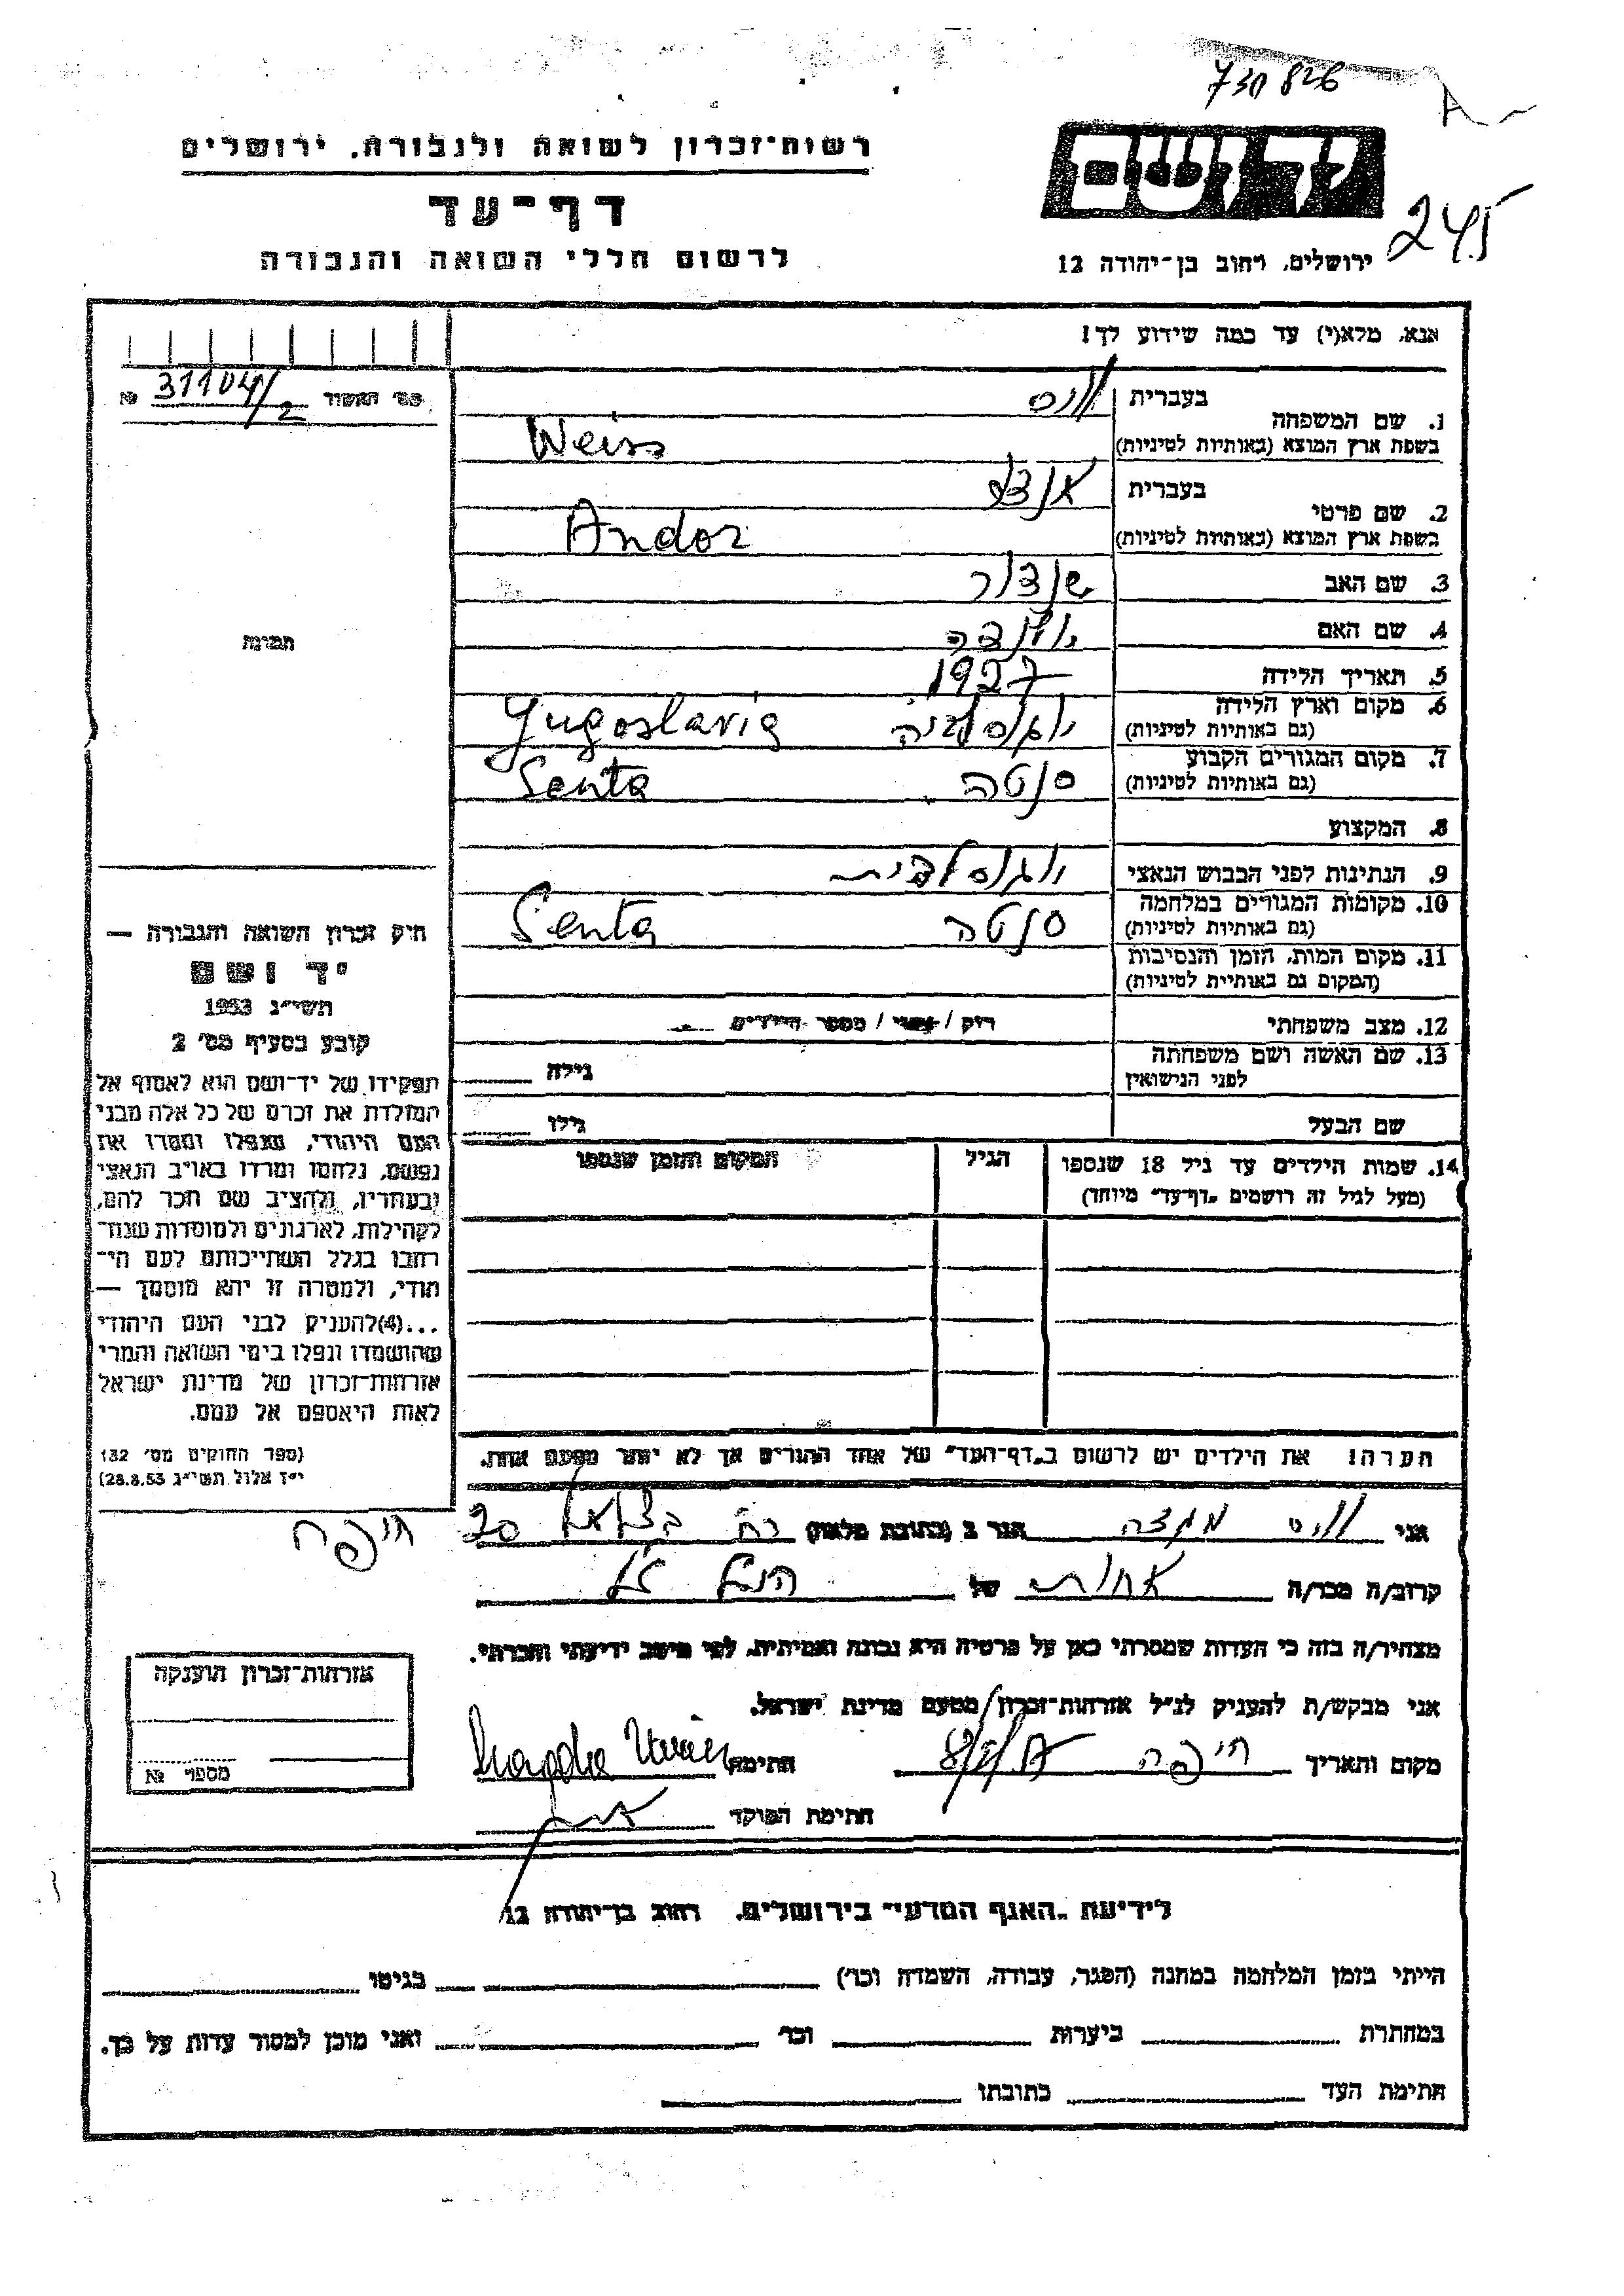 730 826
A
רשות־זכרון לשואה ולגבורה. ירושלים
דף־עד
לרשום חללי השואה והגבורה
יד ושם
ירושלים, רחוב בן־יהודה 12
245
אנא, מלא(י) עד כמה שידוע לך!
מס׳ האשור 31104/2 №
1. שם המשפחה
בעברית
וויס
בשפת ארץ המוצא (באותיות לטיניות)
Weiss
2. שם פרטי
בעברית
בשפת ארץ המוצא (באותיות לטיניות)
Andor
3. שם האב שנדור
4. שם האם
5. תאריך הלידה 1927
6. מקום וארץ הלידה
(גם באותיות לטיניות)
יוגוסלביה Yugoslavia
7. מקום המגורים הקבוע
(גם באותיות לטיניות)
סנטה Senta
8. המקצוע
9. הנתינות לפני הכבוש הנאצי יוגוסלבית
10. מקומות המגורים במלחמה
(גם באותיות לטיניות)
סנטה Senta
11. מקום המות, הזמן והנסיבות
(המקום גם באותיות לטיניות)
12. מצב משפחתי רוק / נשוי / מספר הילדים
13. שם האשה ושם משפחתה
לפני הנישואין
גילה
שם הבעל גילו
14. שמות הילדים עד גיל 18 שנספו
(מעל לגיל זה רושמים „דף־עד” מיוחד)
הגיל
המקום והזמן שנספו
תמונה
חוק זכרון השואה והגבורה —
יד ושם
תשי״ג 1953
קובע בסעיף מס׳ 2
תפקידו של יד־ושם הוא לאסוף אל
המולדת את זכרם של כל אלה מבני
העם היהודי, שנפלו ומסרו את
נפשם, נלחמו ומרדו באויב הנאצי
ובעוזריו, ולהציב שם וזכר להם,
לקהילות, לארגונים ולמוסדות שנח־
רבו בגלל השתייכותם לעם הי־
הודי, ולמטרה זו יהא מוסמך —
...(4)להעניק לבני העם היהודי
שהושמדו ונפלו בימי השואה והמרי
אזרחות־זכרון של מדינת ישראל
לאות היאספם אל עמם.
(ספר החוקים מס׳ 132
י״ז אלול תשי״ג 28.8.53)
הערה! את הילדים יש לרשום ב„דף־העד” של אחד ההורים אך לא יותר מפעם אחת.
אני וויס מגדה הגר ב (כתובת מלאה) רח׳ בצלאל 20 חיפה
קרוב/ה מכר/ה אחות של הנ״ל
מצהיר/ה בזה כי העדות שמסרתי כאן על פרטיה היא נכונה ואמיתית, לפי מיטב ידיעתי והכרתי.
אני מבקש/ת להעניק לנ״ל אזרחות־זכרון מטעם מדינת ישראל.
מקום ותאריך חיפה
חתימה Magda Weiss
חתימת הפוקד
אזרחות־זכרון הוענקה
מספר №
לידיעת „האגף המדעי” בירושלים. רחוב בן־יהודה 12
הייתי בזמן המלחמה במחנה (הסגר, עבודה, השמדה וכו׳) בגיטו
במחתרת ביערות וכו׳ ואני מוכן למסור עדות על כך.
חתימת העד כתובתו